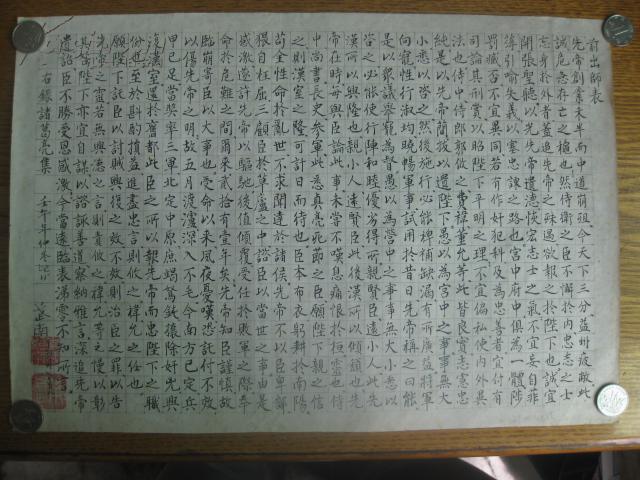 前出師表
先帝創業未半而中道崩殂今天下三分益州疲敝此
誠危急存亡之秋也然侍衛之臣不懈於內忠志之士
忘身於外者蓋追先帝之殊遇欲報之於陛下也誠宜
開張聖聽以光先帝遺德恢宏志士之氣不宜妄自菲
薄引喻失義以塞忠諫之路也宮中府中俱為一體陟
罰臧否不宜異同若有作奸犯科及為忠善者宜付有
司論其刑賞以昭陛下平明之理不宜偏私使內外異
法也侍中侍郎郭攸之費禕董允等此皆良實志慮忠
純是以先帝簡拔以遺陛下愚以為宮中之事事無大
小悉以咨之然後施行必能裨補缺漏有所廣益將軍
向寵性行淑均曉暢軍事試用於昔日先帝稱之曰能
是以眾議舉寵為督愚以為營中之事事無大小悉以
咨之必能使行陣和睦優劣得所親賢臣遠小人此先
漢所以興隆也親小人遠賢臣此後漢所以傾頹也先
帝在時每與臣論此事未嘗不嘆息痛恨於桓靈也侍
中尚書長史參軍此悉貞亮死節之臣願陛下親之信
之則漢室之隆可計日而待也臣本布衣躬耕於南陽
苟全性命於亂世不求聞達於諸侯先帝不以臣卑鄙
猥自枉屈三顧臣於草廬之中諮臣以當世之事由是
感激遂許先帝以驅馳後值傾覆受任於敗軍之際奉
命於危難之間爾來貳拾有壹年矣先帝知臣謹慎故
臨崩寄臣以大事也受命以來夙夜憂嘆恐託付不效
以傷先帝之明故五月渡瀘深入不毛今南方已定兵
甲已足當獎率三軍北定中原庶竭駑鈍攘除奸兇興
復漢室還於舊都此臣之所以報先帝而忠陛下之職
份也至於斟酌損益進盡忠言則攸之禕允之任也
願陛下託臣以討賊興復之效不效則治臣之罪以告
先帝之靈若無興德之言則責攸之禕允等之慢以彰
其咎陛下亦宜自謀以諮諏善道察納雅言深追先帝
遺詔臣不勝受恩感激今當遠離臨表涕零不知所言
右錄諸葛亮集 壬午年仲冬